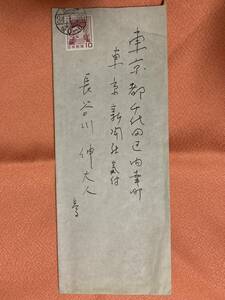 東京都千代田区内幸町
東京新聞社気付
長谷川伸大人
10